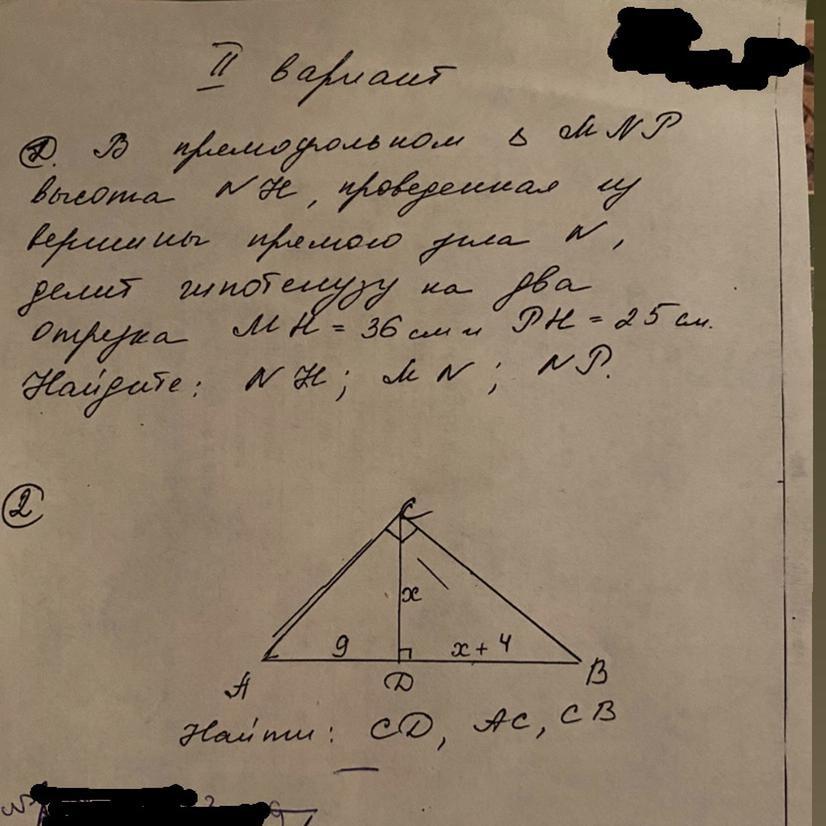 II вариант
1. В прямоугольном Δ MNP
высота NH, проведенная из
вершины прямого угла N,
делит гипотенузу на два
отрезка MH = 36 см и PH = 25 см.
Найдите: NH; MN; NP.
2
C
x
9
x + 4
A
D
B
Найти: CD, AC, CB